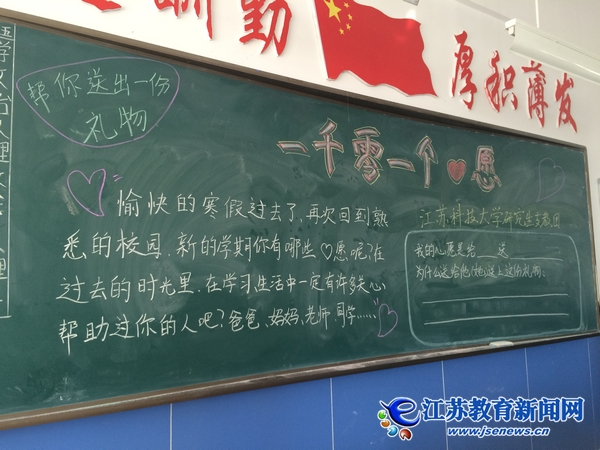 勤
厚积薄发
帮你送出一份
礼物
一千零一个心愿
愉快的寒假过去了,再次回到熟
悉的校园,新的学期你有哪些心愿呢?在
过去的时光里,在学习生活中一定有许多关心
帮助过你的人吧?爸爸、妈妈、老师、同学……
江苏科技大学研究生支教团
我的心愿是给 送
为什么送给他(她)送上这份礼物:
江苏教育新闻网
www.jsenews.cn